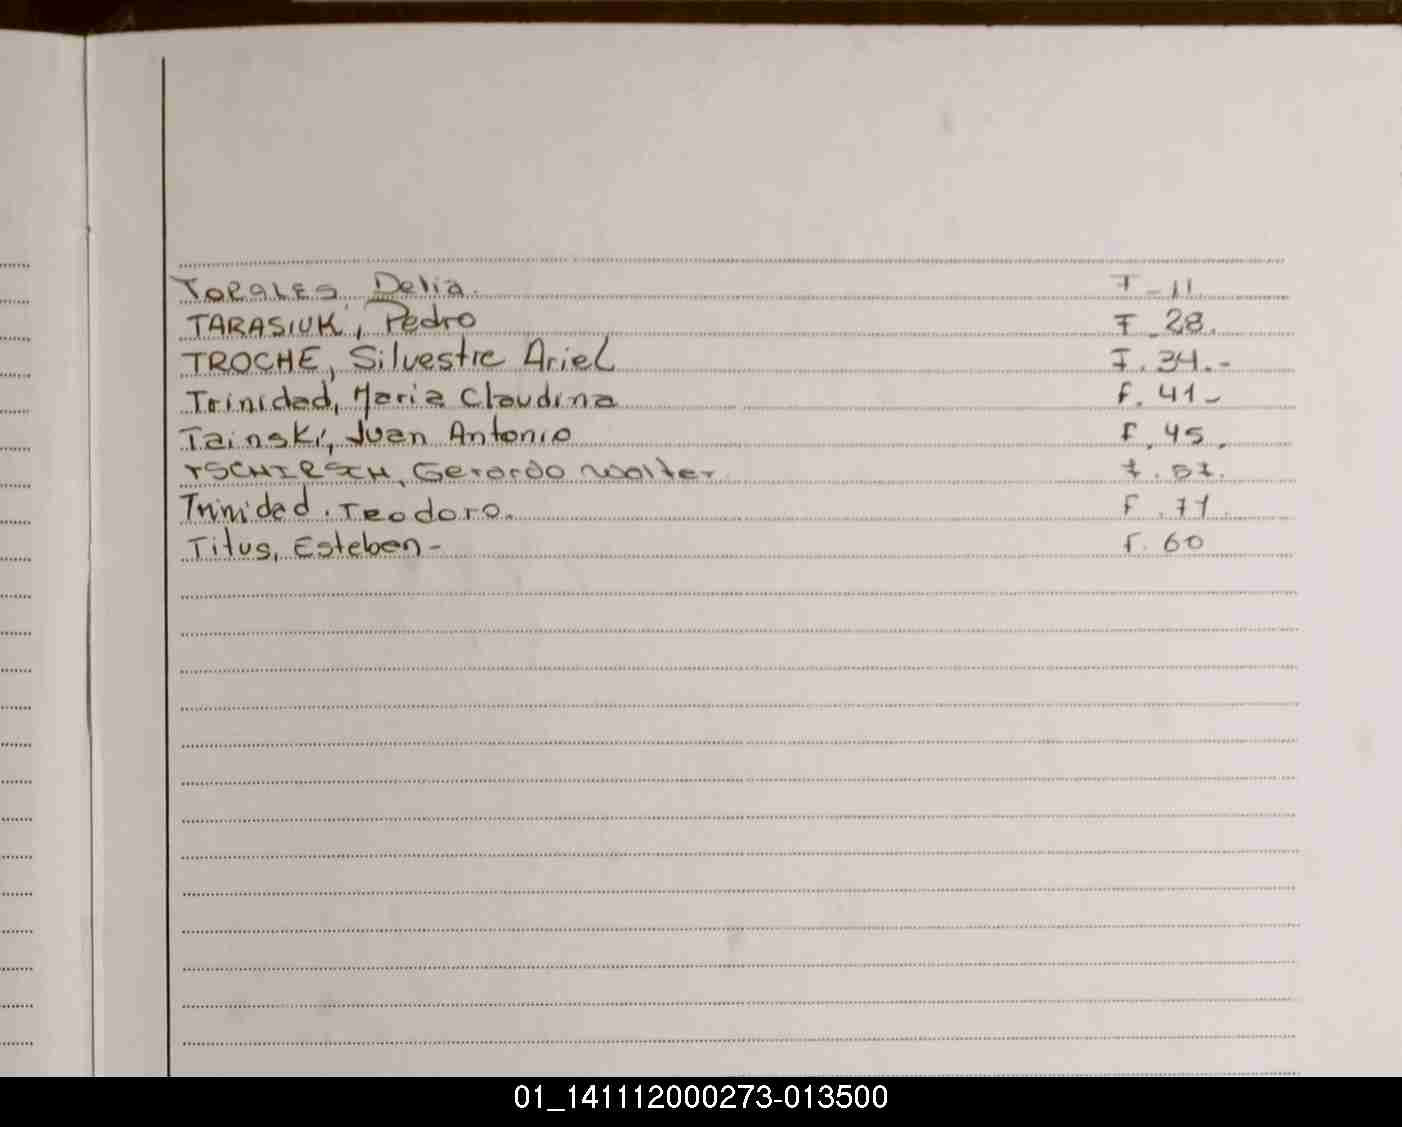 TORALES, Delia. F - 11
TARASIUK, Pedro F. 28.
TROCHE, Silvestre Ariel F. 34.-
Trinidad, Maria Claudina F. 41-
Tainski, Juan Antonio F. 45.
TSCHIRSCH, Gerardo Walter. F. 57.
Trinidad. Teodoro. F. 71.
Titus, Esteban - F. 60
01_141112000273-013500